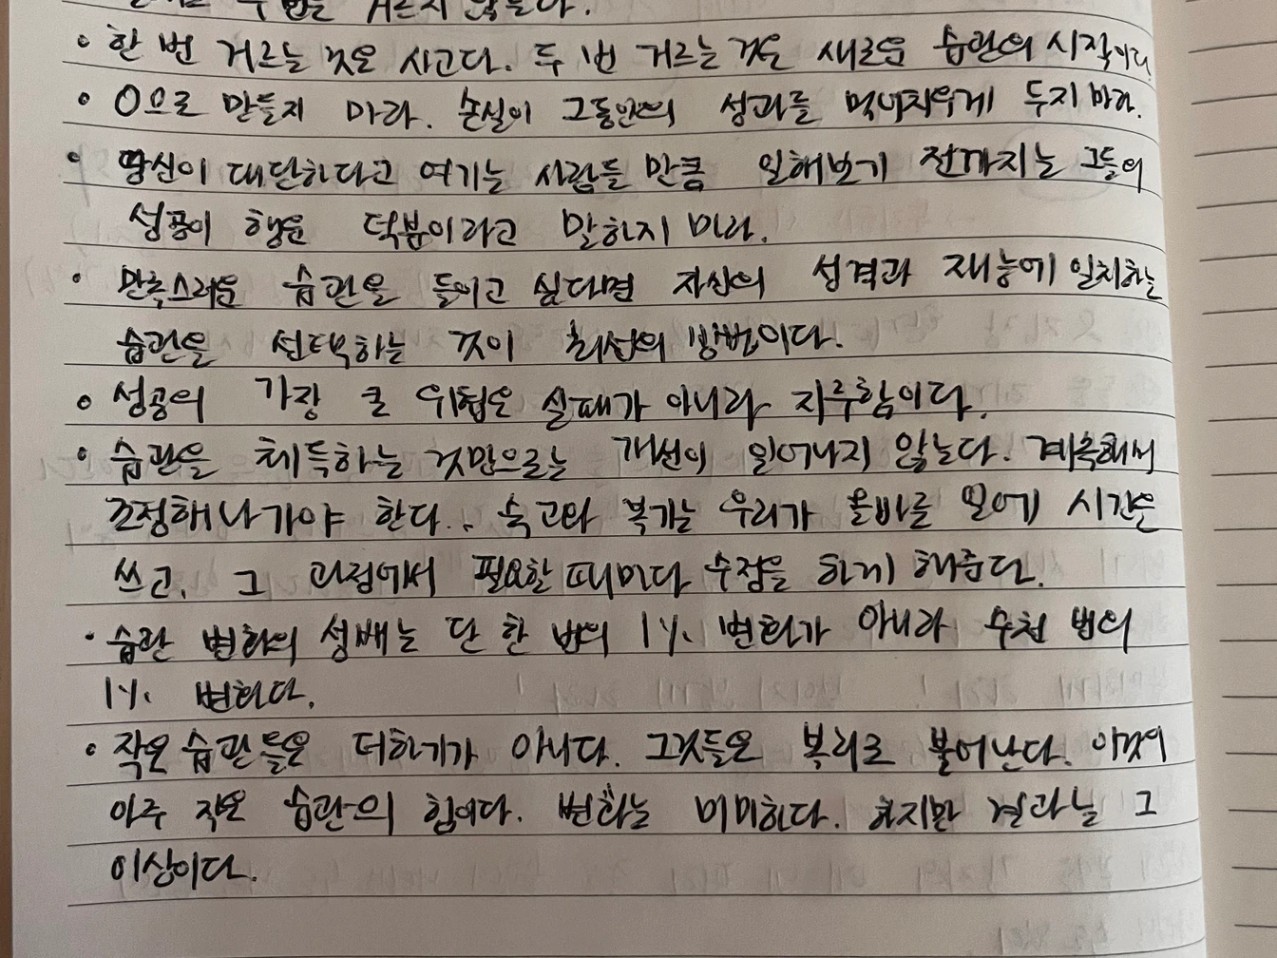 거르지 않는다.
• 한 번 거르는 것은 사고다. 두 번 거르는 것은 새로운 습관의 시작이다
• 0으로 만들지 마라. 손실이 그동안의 성과를 먹어치우게 두지 마라.
• 당신이 대단하다고 여기는 사람들 만큼 일해보기 전까지는 그들의
성공이 행운 덕분이라고 말하지 마라.
• 만족스러운 습관을 들이고 싶다면 자신의 성격과 재능에 일치하는
습관을 선택하는 것이 최선의 방법이다.
• 성공의 가장 큰 위협은 실패가 아니라 지루함이다.
• 습관을 체득하는 것만으로는 개선이 일어나지 않는다. 계속해서
조정해나가야 한다. 숙고와 복기는 우리가 올바를 일에 시간을
쓰고, 그 과정에서 필요한 때마다 수정을 하게 해준다.
• 습관 변화의 성배는 단 한 번의 1% 변화가 아니라 수천 번의
1% 변화다.
• 작은 습관들은 더하기가 아니다. 그것들은 복리로 불어난다. 이것이
아주 작은 습관의 힘이다. 변화는 미미하다. 하지만 결과는 그
이상이다.